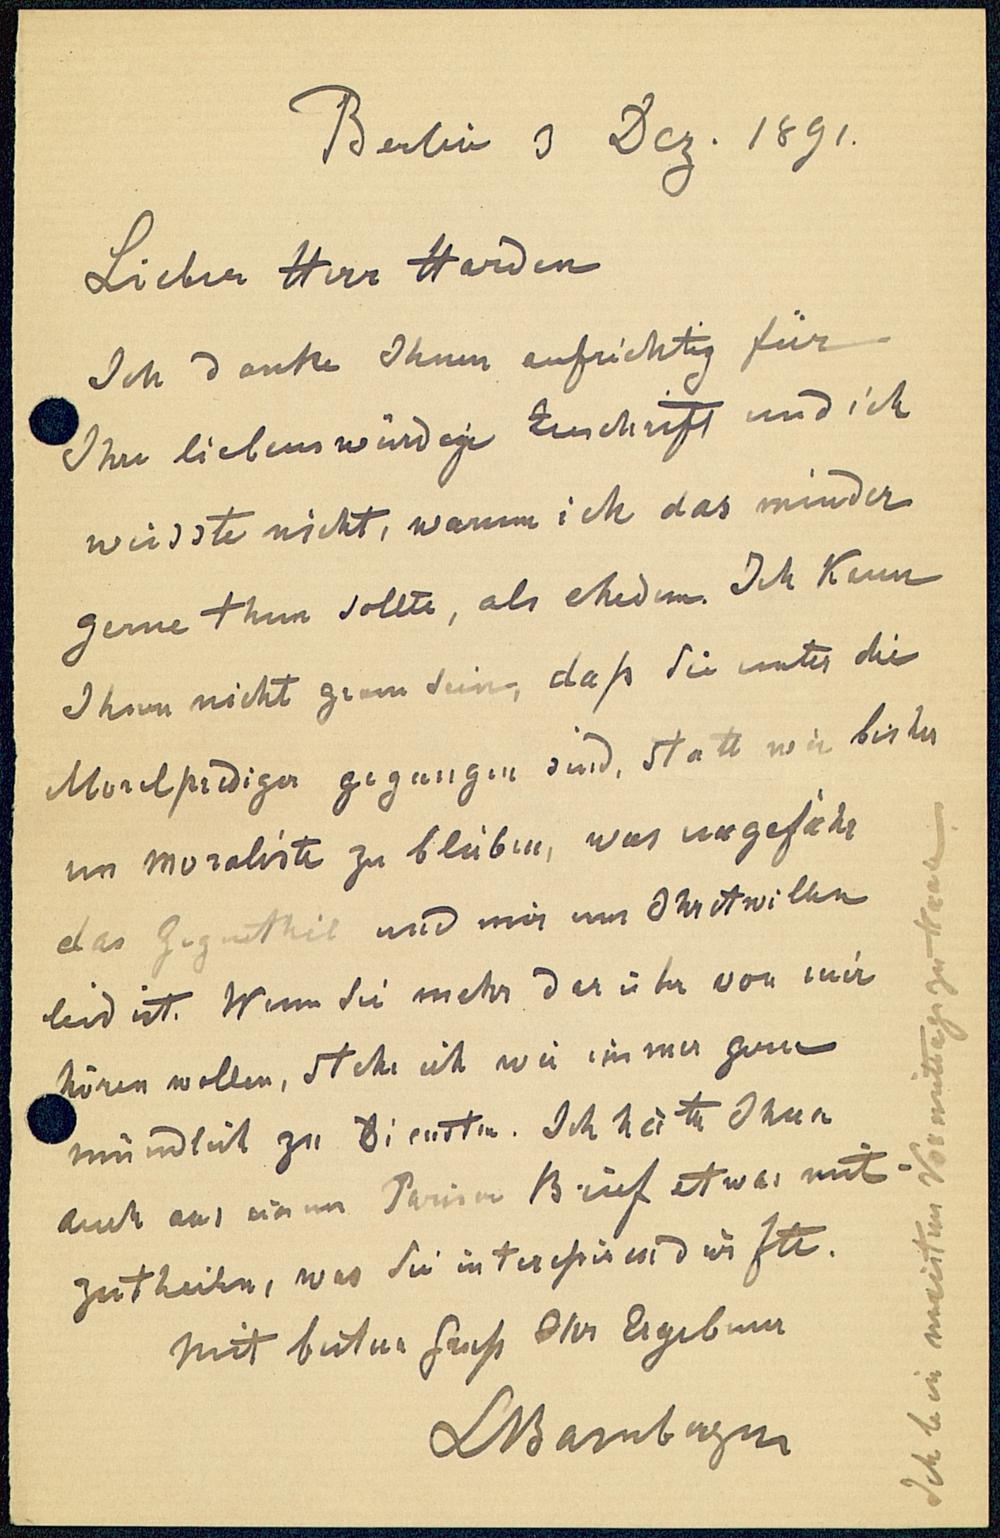 Berlin 3 Dez. 1891.
Lieber Herr Harden
Ich danke Ihnen aufrichtig für
Ihre liebenswürdige Zuschrift und ich
wüsste nicht, warum ich das minder
gerne thun sollte, als ehedem. Ich kann
Ihnen nicht gram sein, daß Sie unter die
Moralprediger gegangen sind, statt wie bisher
ein Moraliste zu bleiben, was ungefähr
das Gegentheil und mir um Ihretwillen
leid ist. Wenn Sie mehr darüber von mir
hören wollen, stehe ich wie immer gern
mündlich zu Diensten. Ich hätte Ihnen
auch aus einem Pariser Brief etwas mit-
zutheilen, was Sie interessiren dürfte.
Mit bestem Gruß Ihr Ergebener
LBamberger
Ich bin meistens Vormittags zu Hause.